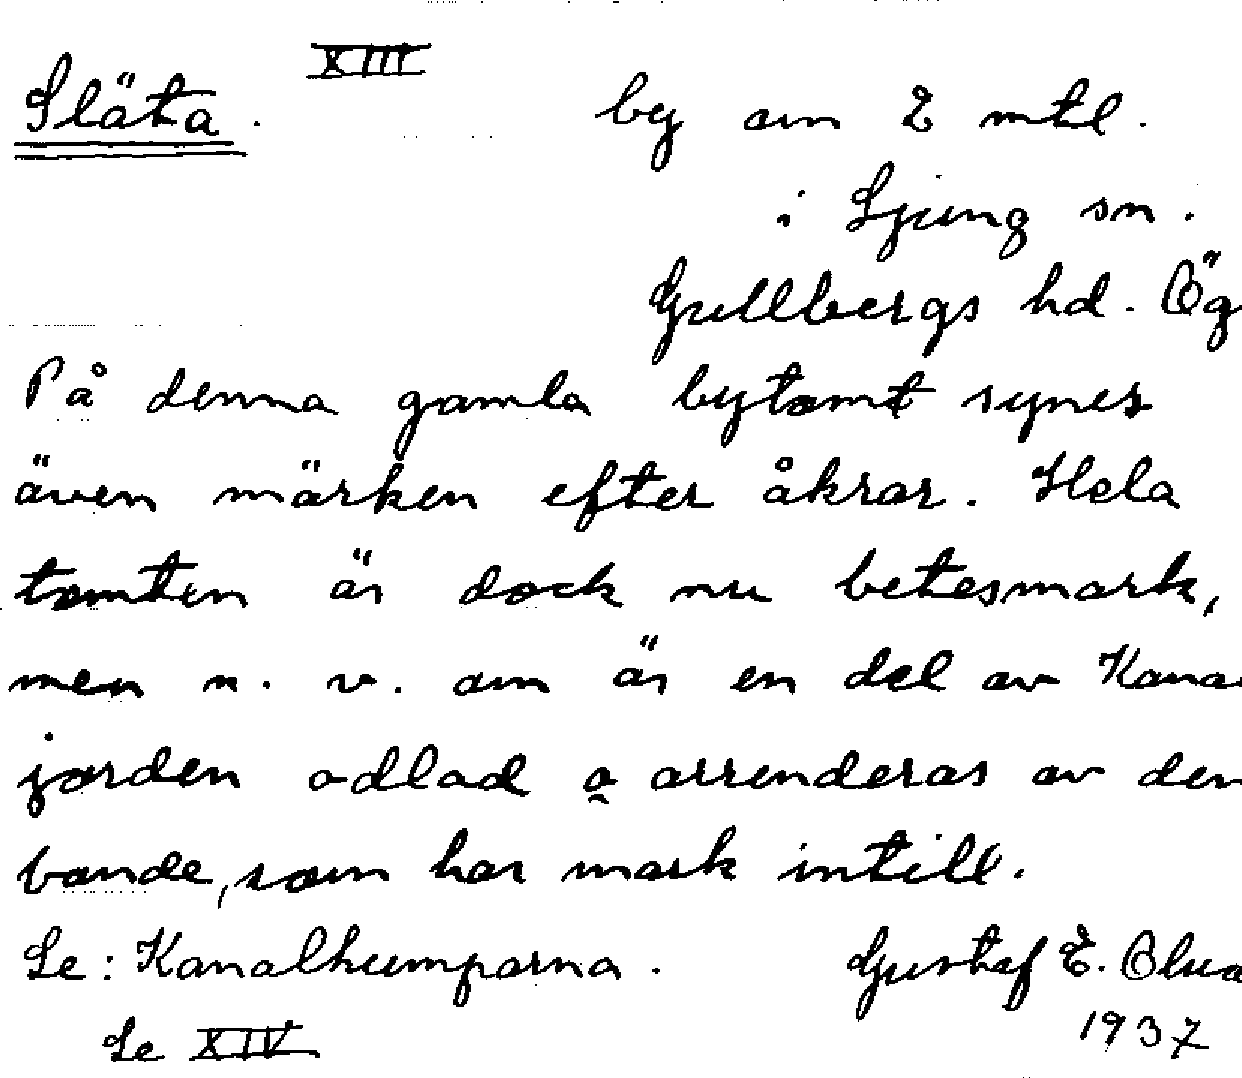 XIII
Släta. by om 2 mtl.
i Ljung sn.
Gullbergs hd. Ög
På denna gamla bytomt synes
även märken efter åkrar. Hela
tomten är dock nu betesmark,
men n. v. om är en del av Kana
jorden odlad o arrenderas av den
bonde, som har mark intill.
Se: Kanalhumparna. Gustaf E.
Se XIV 1937